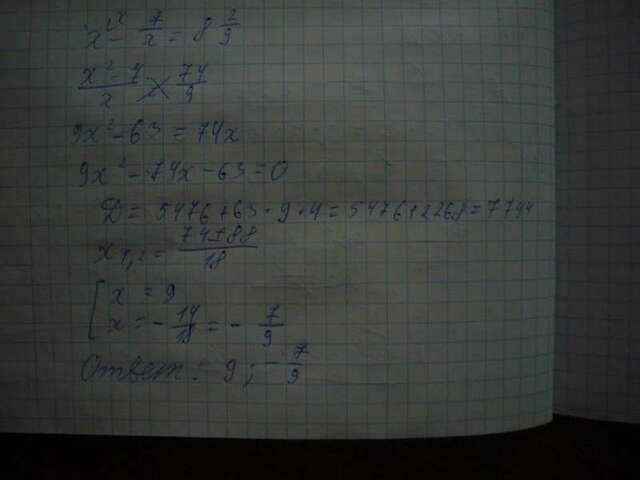 x - 7/x = 8 2/9
(x² - 7)/x = 74/9
9x² - 63 = 74x
9x² - 74x - 63 = 0
D = 5476 + 63 · 9 · 4 = 5476 + 2268 = 7744
x₁,₂ = (74 ± 88)/18
[ x = 9
x = - 14/18 = - 7/9
Ответ: 9; - 7/9